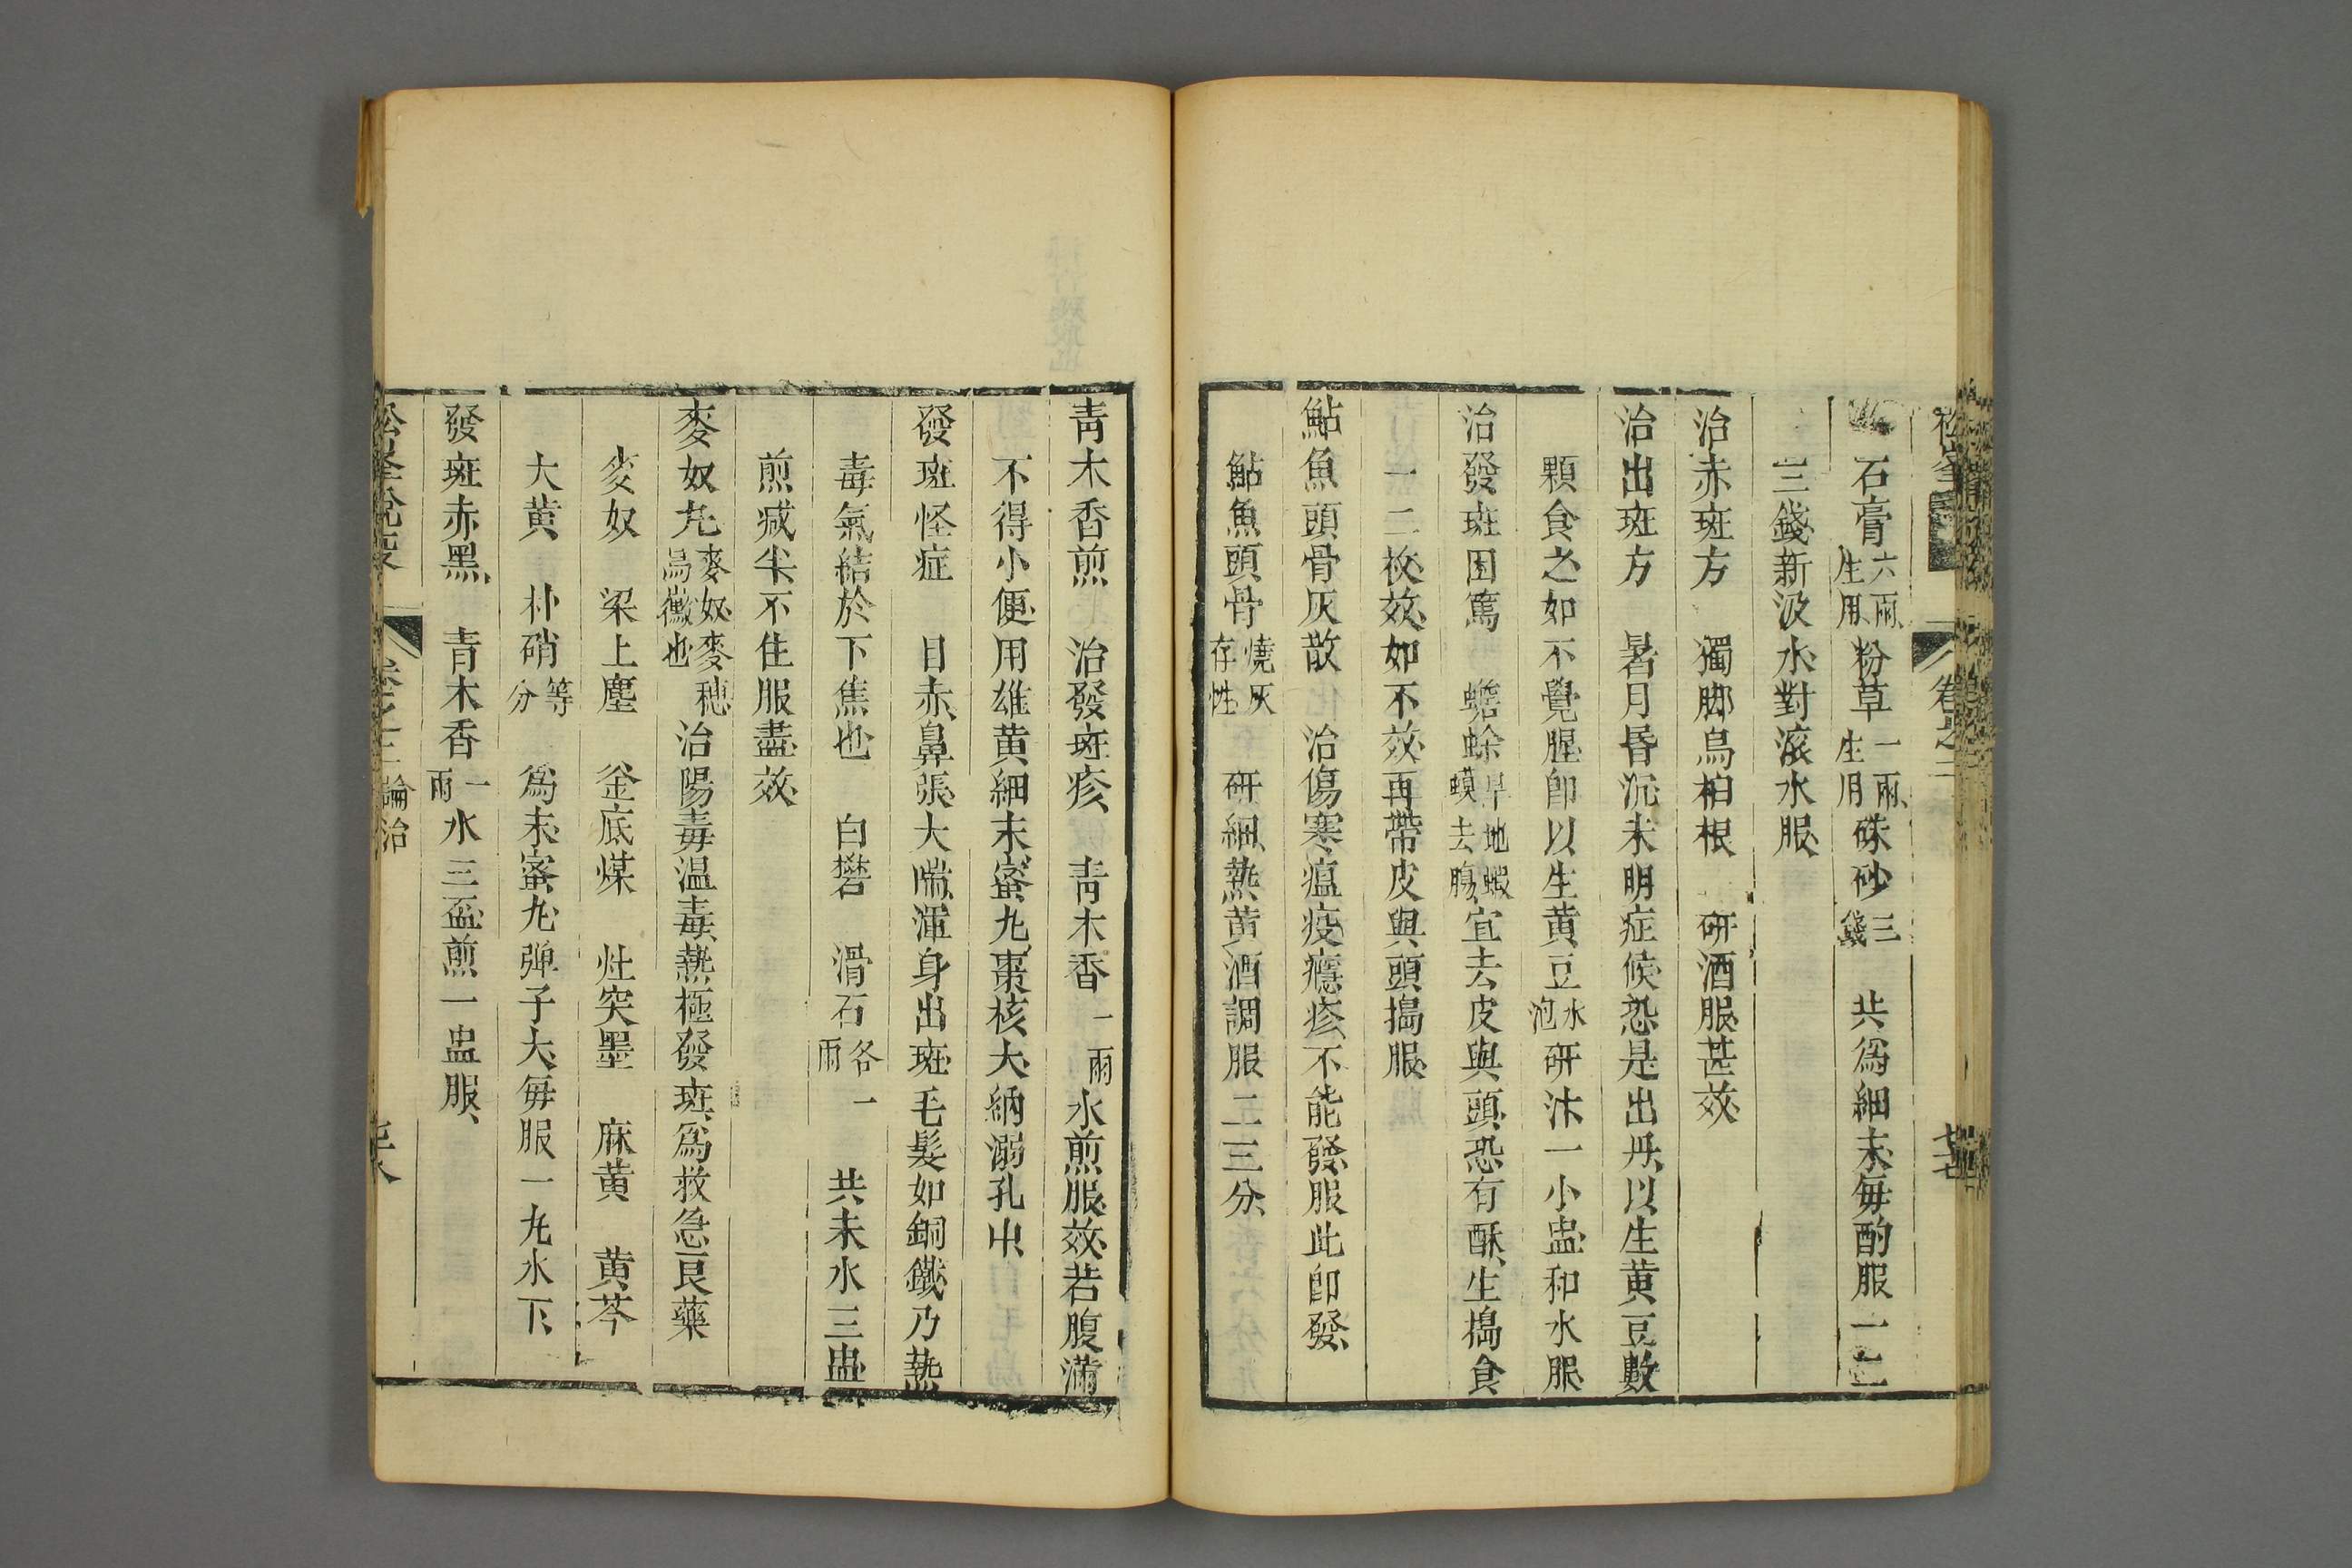 卷之二
石膏六兩生用粉草一兩生用硃砂三錢 共為細末每酌服一二
三錢新汲水對滚水服
治赤斑方 獨脚烏桕根 研酒服甚效
治出斑方 暑月昏沉未明症候恐是出丹以生黄豆數
顆食之如不覺腥卽以生黄豆水泡研汁一小盅和水服
治發斑困篤 蟾蜍旱地蝦蟆去腸宜去皮與頭恐有酥生搗食
一二枚效如不效再帶皮與頭搗服
鮎魚頭骨灰散 治傷寒瘟疫癮疹不能發服此卽發
鮎魚頭骨燒灰存性 研細熱黄酒調服二三分
靑木香煎 治發斑疹 靑木香一兩水煎服效若腹滿
不得小便用雄黄細末蜜丸棗核大納溺孔中
發斑怪症 目赤鼻張大喘渾身出斑毛髮如銅鐵乃熱
毒氣結於下焦也 白礬 滑石各一兩 共末水三盅
煎减半不住服盡效
麥奴丸麥奴麥穗烏黴也 治陽毒温毒熱極發斑為救急良藥
麥奴 梁上塵 釜底煤 灶突墨 麻黄 黄芩
大黄 朴硝等分 為末蜜丸弹子大每服一丸水下
發斑赤黑 青木香一兩水三盃煎一盅服
松峯說疫 卷之二論治